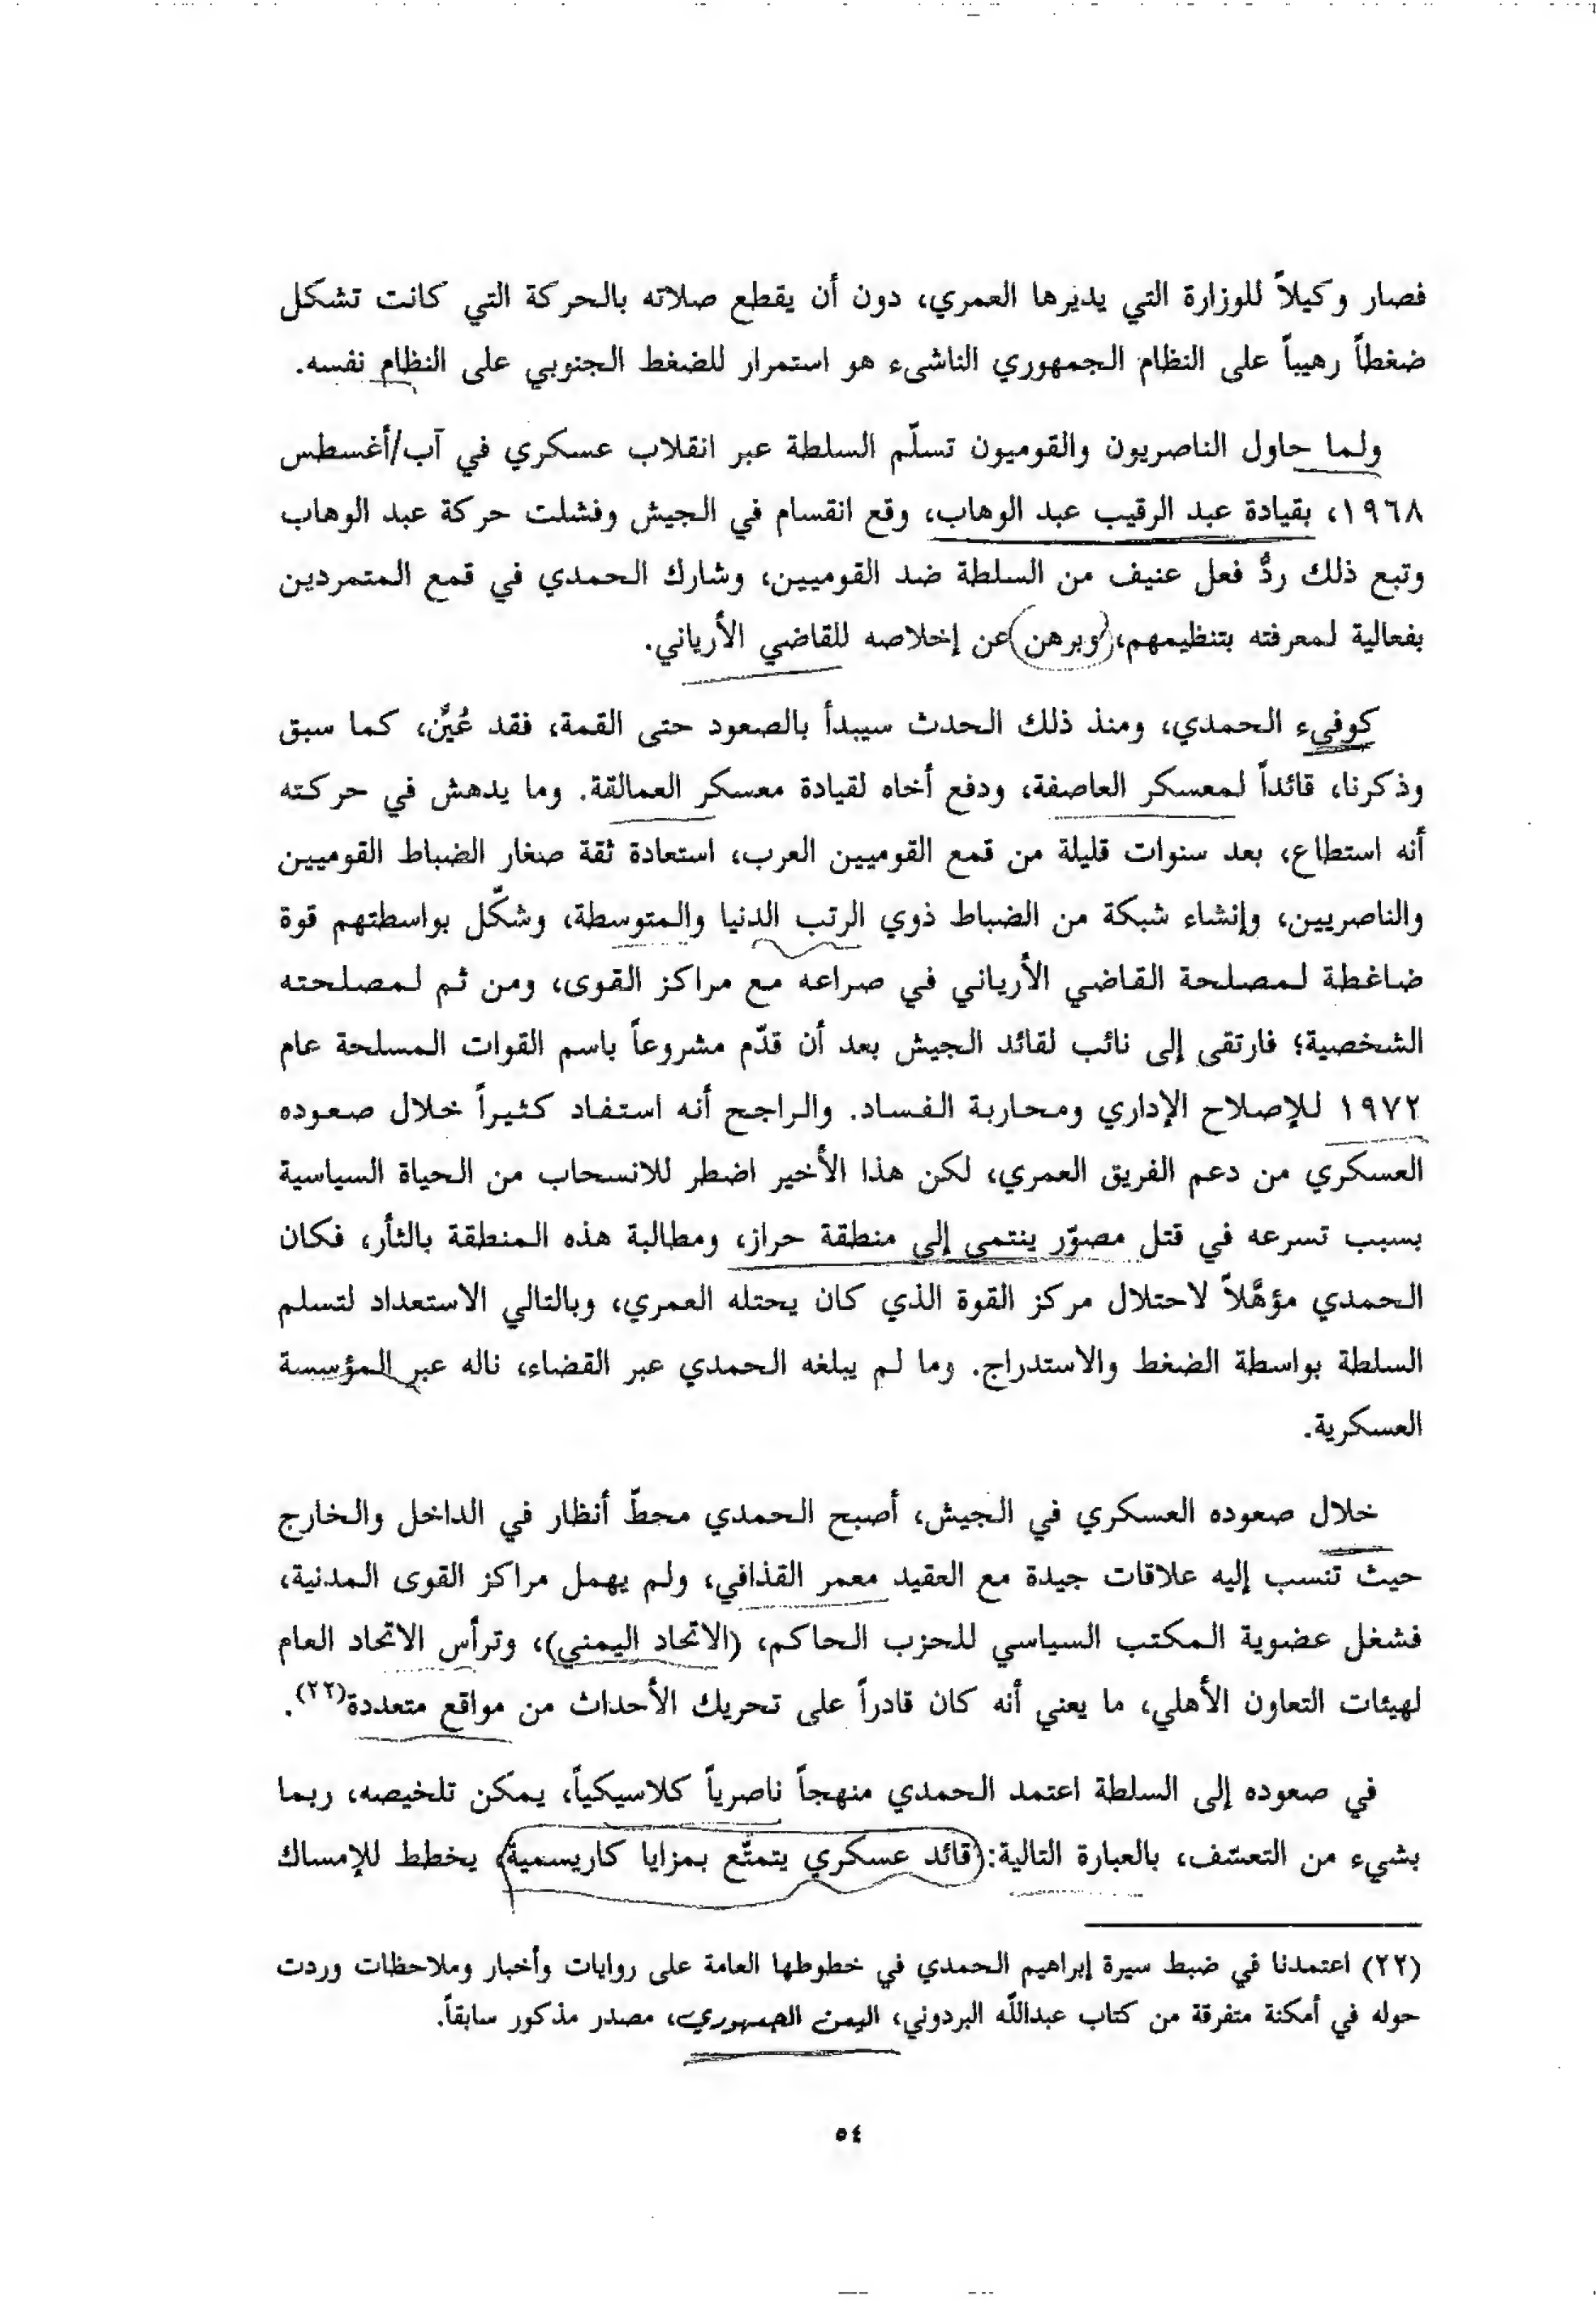 فصار وكيلاً للوزارة التي يديرها العمري، دون أن يقطع صلاته بالحركة التي كانت تشكل
ضغطاً رهيباً على النظام الجمهوري الناشىء هو استمرار للضغط الجنوبي على النظام نفسه.
ولما حاول الناصريون والقوميون تسلّم السلطة عبر انقلاب عسكري في آب/أغسطس
١٩٦٨، بقيادة عبد الرقيب عبد الوهاب، وقع انقسام في الجيش وفشلت حركة عبد الوهاب
وتبع ذلك ردُّ فعل عنيف من السلطة ضد القوميين، وشارك الحمدي في قمع المتمردين
بفعالية لمعرفته بتنظيمهم، وبرهن عن إخلاصه للقاضي الأرياني.
كوفىء الحمدي، ومنذ ذلك الحدث سيبدأ بالصعود حتى القمة، فقد عُيَّن، كما سبق
وذكرنا، قائداً لمعسكر العاصفة، ودفع أخاه لقيادة معسكر العمالقة. وما يدهش في حركته
أنه استطاع، بعد سنوات قليلة من قمع القوميين العرب، استعادة ثقة صغار الضباط القوميين
والناصريين، وإنشاء شبكة من الضباط ذوي الرتب الدنيا والمتوسطة، وشكّل بواسطتهم قوة
ضاغطة لمصلحة القاضي الأرياني في صراعه مع مراكز القوى، ومن ثم لمصلحته
الشخصية؛ فارتقى إلى نائب لقائد الجيش بعد أن قدّم مشروعاً باسم القوات المسلحة عام
١٩٧٢ للإصلاح الإداري ومحاربة الفساد. والراجح أنه استفاد كثيراً خلال صعوده
العسكري من دعم الفريق العمري، لكن هذا الأخير اضطر للانسحاب من الحياة السياسية
بسبب تسرعه في قتل مصوّر ينتمي إلى منطقة حراز، ومطالبة هذه المنطقة بالثأر، فكان
الحمدي مؤهَّلاً لاحتلال مركز القوة الذي كان يحتله العمري، وبالتالي الاستعداد لتسلم
السلطة بواسطة الضغط والاستدراج. وما لم يبلغه الحمدي عبر القضاء، ناله عبر المؤسسة
العسكرية.
خلال صعوده العسكري في الجيش، أصبح الحمدي محطّ أنظار في الداخل والخارج
حيث تنسب إليه علاقات جيدة مع العقيد معمر القذافي، ولم يهمل مراكز القوى المدنية،
فشغل عضوية المكتب السياسي للحزب الحاكم، (الاتحاد اليمني)، وترأس الاتحاد العام
لهيئات التعاون الأهلي، ما يعني أنه كان قادراً على تحريك الأحداث من مواقع متعددة(٢٢).
في صعوده إلى السلطة اعتمد الحمدي منهجاً ناصرياً كلاسيكياً، يمكن تلخيصه، ربما
بشيء من التعسّف، بالعبارة التالية: (قائد عسكري يتمتّع بمزايا كاريسمية) يخطط للإمساك
(٢٢) اعتمدنا في ضبط سيرة إبراهيم الحمدي في خطوطها العامة على روايات وأخبار وملاحظات وردت
حوله في أمكنة متفرقة من كتاب عبدالله البردوني، اليمن الجمهوري، مصدر مذكور سابقاً.
٥٤